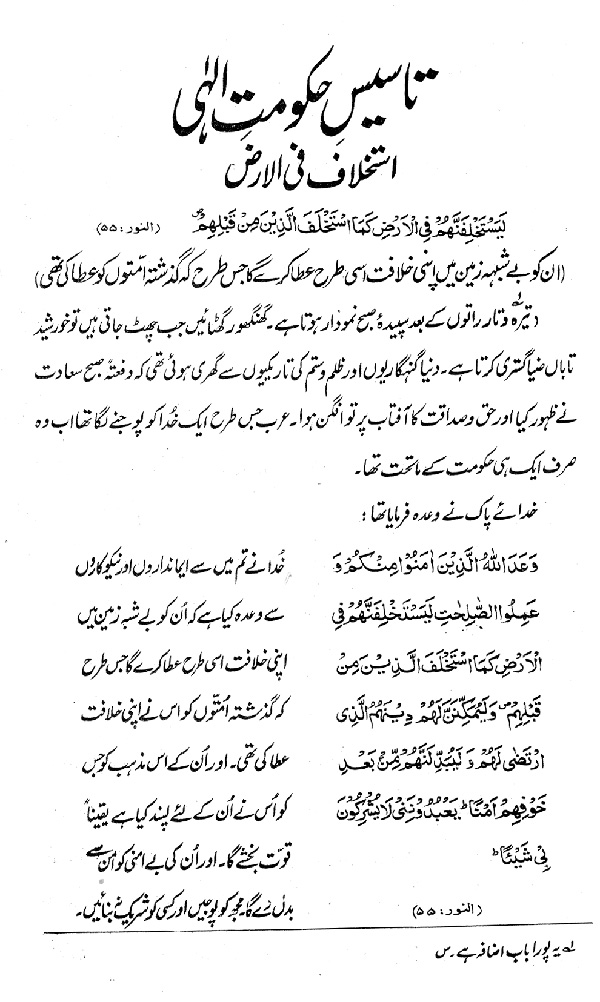 تاسیسِ حکومتِ الٰہی
استخلاف فی الارض
لَيَسْتَخْلِفَنَّهُمْ فِي الْاَرْضِ كَمَا اسْتَخْلَفَ الَّذِيْنَ مِنْ قَبْلِهِمْ ؕ (النور: ۵۵)
(ان کو بے شبہہ زمین میں اپنی خلافت اسی طرح عطا کرے گا جس طرح کہ گذشتہ امّتوں کو عطا کی تھی)
تیرہ و تار راتوں کے بعد سپیدۂ صبح نمودار ہوتا ہے۔ گھنگھور گھٹائیں جب پھٹ جاتی ہیں تو خورشید
تاباں ضیاگستری کرتا ہے۔ دنیا گنہگاریوں اور ظلم و ستم کی تاریکیوں سے گھری ہوئی تھی کہ دفعتہً صبح سعادت
نے ظہور کیا اور حق و صداقت کا آفتاب پرتو افگن ہوا۔ عرب جس طرح ایک خُدا کو پوجنے لگا تھا اب وہ
صرف ایک ہی حکومت کے ماتحت تھا۔
خدائے پاک نے وعدہ فرمایا تھا؛
وَعَدَ اللّٰهُ الَّذِيْنَ اٰمَنُوْا مِنْكُمْ وَ
عَمِلُوا الصّٰلِحٰتِ لَيَسْتَخْلِفَنَّهُمْ فِي
الْاَرْضِ كَمَا اسْتَخْلَفَ الَّذِيْنَ مِنْ
قَبْلِهِمْ ۪ وَلَيُمَكِّنَنَّ لَهُمْ دِيْنَهُمُ الَّذِي
ارْتَضٰى لَهُمْ وَلَيُبَدِّلَنَّهُمْ مِّنْۢ بَعْدِ
خَوْفِهِمْ اَمْنًا ؕ يَعْبُدُوْنَنِيْ لَا يُشْرِكُوْنَ
بِيْ شَيْئًا ؕ
(النور: ۵۵)
خُدا نے تم میں سے ایمانداروں اور نیکوکاروں
سے وعدہ کیا ہے کہ اُن کو بے شبہ زمین میں
اپنی خلافت اسی طرح عطا کرے گا جس طرح
کہ گذشتہ اُمّتوں کو اس نے اپنی خلافت
عطا کی تھی۔ اور اُن کے اس مذہب کو جس
کو اُس نے اُن کے لئے پسند کیا ہے یقیناً
قوت بخشے گا۔ اور اُن کی بے امنی کو امن سے
بدل دے گا۔ مجھ کو پوجیں اور کسی کو شریک نہ بنائیں۔
لے یہ پورا باب اضافہ ہے۔ س